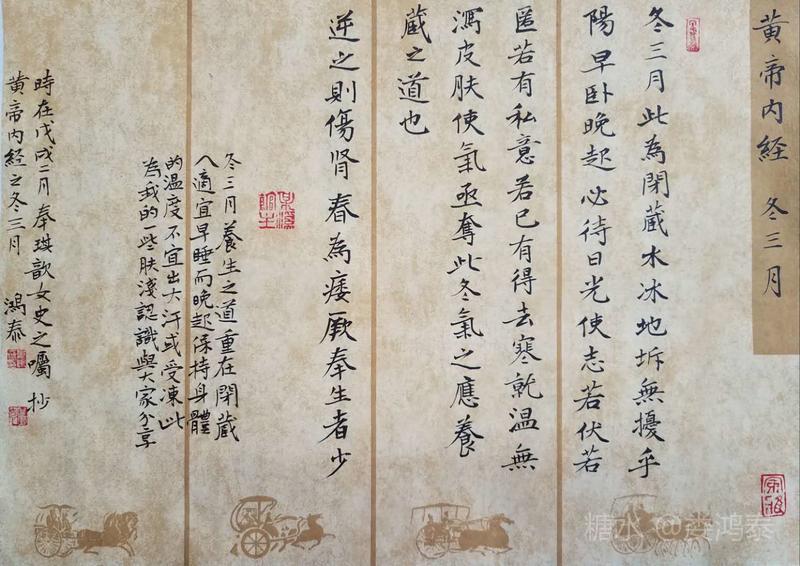 黄帝内经 冬三月
冬三月此為閉藏水冰地坼無擾乎
陽早卧晚起必待日光使志若伏若
匿若有私意若已有得去寒就温無
瀉皮肤使氣亟奪此冬氣之應養
藏之道也
逆之則傷肾春為痿厥奉生者少
冬三月養生之道重在閉藏
入適宜早睡而晚起保持身體
的温度不宜出大汗或受凍此
為我的一些肤淺認識與大家分享
時在戊戌二月奉琪歆女史之囑抄
黄帝内经之冬三月 鴻泰
糖水 @鴻泰